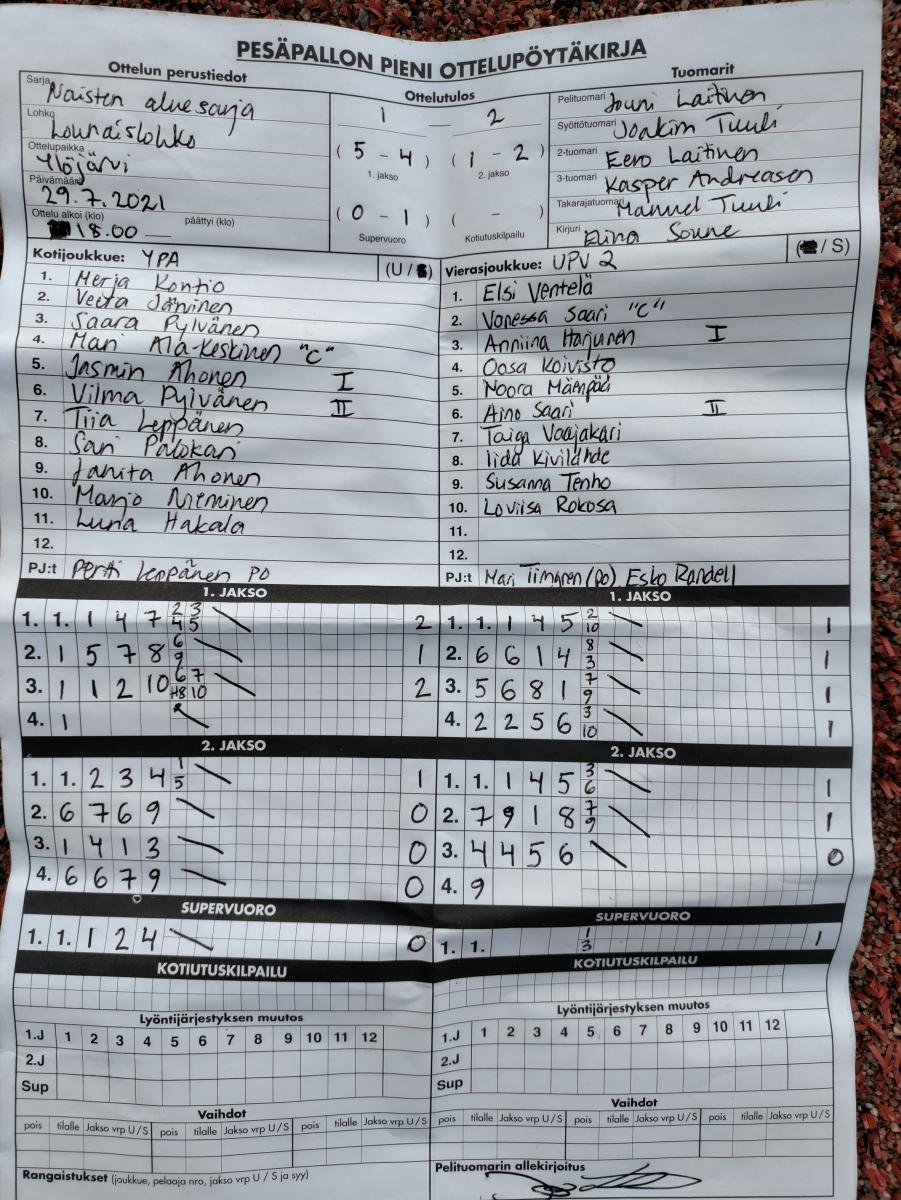 PESÄPALLON PIENI OTTELUPÖYTÄKIRJA
Ottelun perustiedot
Sarja Naisten aluesarja
Lohko Lounaislohko
Ottelupaikka Ylöjärvi
Päivämäärä 29.7.2021
Ottelu alkoi (klo) 18.00 päättyi (klo)
Ottelutulos
1 – 2
( 5 - 4 ) ( 1 - 2 )
1. jakso 2. jakso
( 0 - 1 ) ( - )
Supervuoro Kotiutuskilpailu
Tuomarit
Pelituomari Jouni Laitinen
Syöttötuomari Joakim Tuuli
2-tuomari Eero Laitinen
3-tuomari Kasper Andreasen
Takarajatuomari Manuel Tuuli
Kirjuri Elina Sonne
Kotijoukkue: YPA (U / S)
1. Merja Kontio
2. Veera Järvinen
3. Saara Pylvänen
4. Mari Ala-Keskinen "C"
5. Jasmin Ahonen I
6. Vilma Pylvänen II
7. Tiia Leppänen
8. Sari Palokari
9. Janita Ahonen
10. Marjo Nieminen
11. Luna Hakala
12.
PJ:t Pertti Leppänen PO
Vierasjoukkue: UPV 2 ( / S)
1. Elsi Ventelä
2. Vanessa Saari "C"
3. Anniina Harjunen I
4. Oosa Koivisto
5. Noora Mäenpää
6. Aino Saari II
7. Taiga Vaajakari
8. Iida Kivilahde
9. Susanna Tenho
10. Loviisa Rokosa
11.
12.
PJ:t Mari Timgren (po), Esko Randell
1. JAKSO
1. 1. 1 4 7 2 3 4 5 2
2. 1 5 7 8 6 9 1
3. 1 1 2 10 6 7 +8 10 2
4. 1
1. JAKSO
1. 1. 1 4 5 2 10 1
2. 6 6 1 4 8 3 1
3. 5 6 8 1 7 9 1
4. 2 2 5 6 3 10 1
2. JAKSO
1. 1. 2 3 4 1 5 1
2. 6 7 6 9 0
3. 1 4 1 3 0
4. 6 6 7 9 0
2. JAKSO
1. 1. 1 4 5 3 6 1
2. 7 9 1 8 7 9 1
3. 4 4 5 6 0
4. 9
SUPERVUORO
1. 1. 1 2 4 0
SUPERVUORO
1. 1. 1 3 1
KOTIUTUSKILPAILU
KOTIUTUSKILPAILU
Lyöntijärjestyksen muutos
1.J 1 2 3 4 5 6 7 8 9 10 11 12
2.J
Sup
Lyöntijärjestyksen muutos
1.J 1 2 3 4 5 6 7 8 9 10 11 12
2.J
Sup
Vaihdot
pois tilalle Jakso vrp U / S pois tilalle Jakso vrp U / S pois tilalle Jakso vrp U / S
Vaihdot
pois tilalle Jakso vrp U / S pois tilalle Jakso vrp U / S pois tilalle Jakso vrp U / S
Rangaistukset (joukkue, pelaaja nro, jakso vrp U / S ja syy)
Pelituomarin allekirjoitus